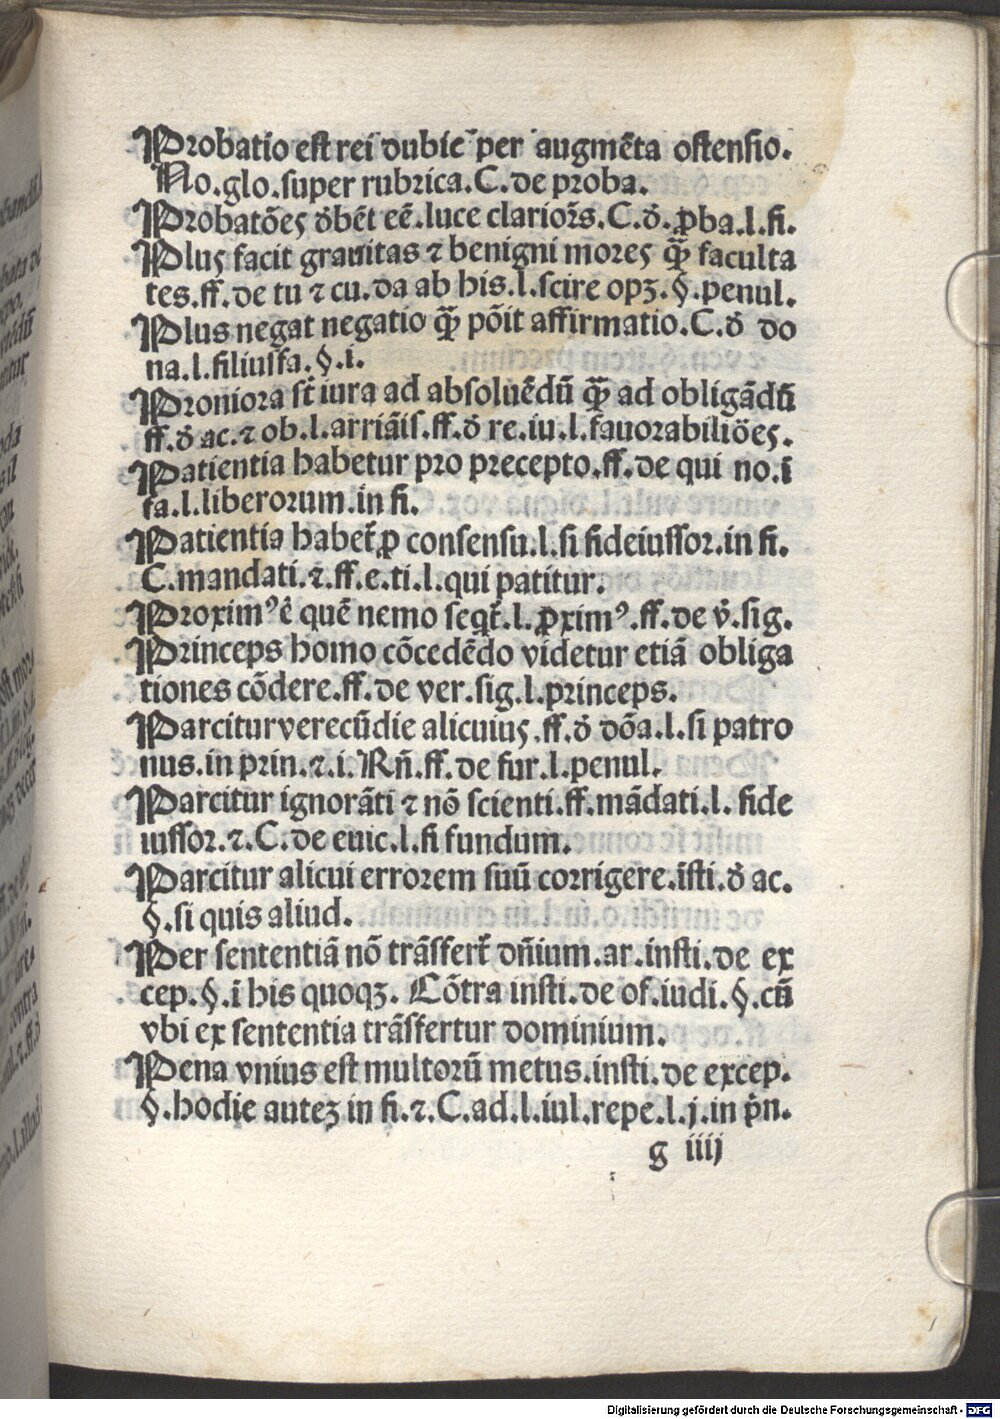 Probatio est rei dubie per augmēta ostensio.
No.glo.super rubrica.C.de proba.
Probatōes d̕bēt eē.luce clarior̄s.C.d̕.ꝓba.l.fi.
Plus facit grauitas ⁊ benigni mores qꝫ̄ faculta
tes.ff.de tu ⁊ cu.da ab his.l.scire opꝫ.§.penul.
Plus negat negatio qꝫ̄ pōit affirmatio.C.d̕ do
na.l.filiusfa.§.i.
Proniora st̄ iura ad absoluēdū qꝫ̄ ad obligādū
ff.d̕ ac.⁊ ob.l.arriāis.ff.d̕ re.iu.l.fauorabiliōes.
Patientia habetur pro precepto.ff.de qui no.ī
fa.l.liberorum.in fi.
Patientia habet̄ ꝓ consensu.l.si fideiussor.in fi.
C.mandati.⁊.ff.e.ti.l.qui patitur.
Proximꝰ ē quē nemo seqt̄.l.ꝓximꝰ.ff.de v̕.sig.
Princeps homo cōcedēdo videtur etiā obliga
tiones cōdere.ff.de ver.sig.l.princeps.
Parcitur verecūdie alicuius.ff.d̕ dōa.l.si patro
nus.in prin.⁊.i. Rn̄.ff.de fur.l.penul.
Parcitur ignorāti ⁊ nō scienti.ff.mādati.l. fide
iussor.⁊.C.de euic.l.si fundum.
Parcitur alicui errorem suū corrigere.īsti.d̕ ac.
§.si quis aliud.
Per sententiā nō trāsfert̄ dn̄ium.ar.insti.de ex
cep.§.ī his quoqꝫ. Cōtra insti.de of.iudi.§.cū
vbi ex sententia trāsfertur dominium.
Pena vnius est multorū metus.insti.de excep.
§.hodie auteꝫ in fi.⁊.C.ad.l.iul.repe.l.j.in p̕n.
g iiij
Digitalisierung gefördert durch die Deutsche Forschungsgemeinschaft - DFG